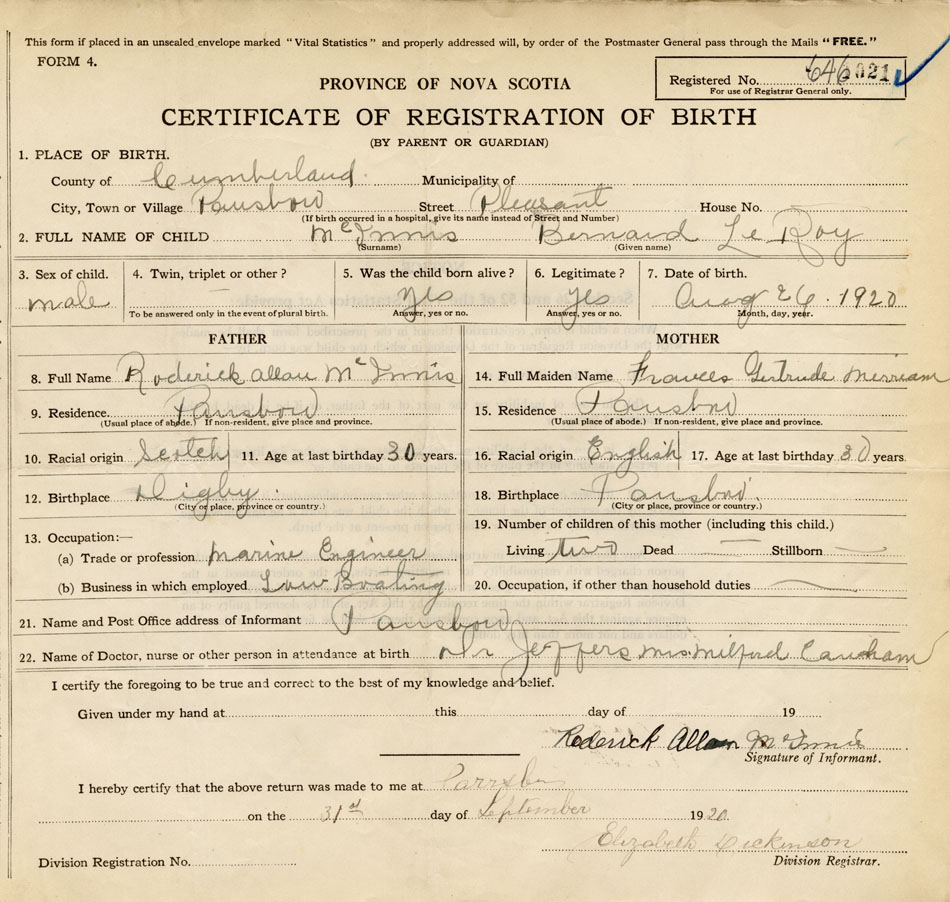 This form if placed in an unsealed envelope marked "Vital Statistics" and properly addressed will, by order of the Postmaster General pass through the Mails "FREE."
FORM 4.
Registered No. 646021
For use of Registrar General only.
PROVINCE OF NOVA SCOTIA
CERTIFICATE OF REGISTRATION OF BIRTH
(BY PARENT OR GUARDIAN)
1. PLACE OF BIRTH.
County of Cumberland Municipality of
City, Town or Village Street Pleasant House No.
(If birth occurred in a hospital, give its name instead of Street and Number)
2. FULL NAME OF CHILD McInnis Bernard Le Roy
(Surname) (Given name)
3. Sex of child. 4. Twin, triplet or other? 5. Was the child born alive? 6. Legitimate? 7. Date of birth.
male — Yes yes Aug 26. 1920
To be answered only in the event of plural birth. Answer, yes or no. Answer, yes or no. Month, day, year.
FATHER MOTHER
8. Full Name Roderick allan McInnis 14. Full Maiden Name Frances Gertrude Merriam
9. Residence. 15. Residence
(Usual place of abode.) If non-resident, give place and province. (Usual place of abode.) If non-resident, give place and province.
10. Racial origin Scotch 11. Age at last birthday 30 years. 16. Racial origin English 17. Age at last birthday 30 years.
12. Birthplace Digby. 18. Birthplace
(City or place, province or country.) (City or place, province or country.)
19. Number of children of this mother (including this child.)
13. Occupation:—
(a) Trade or profession Marine Engineer Living two Dead — Stillborn —
(b) Business in which employed Boating 20. Occupation, if other than household duties —
21. Name and Post Office address of Informant
22. Name of Doctor, nurse or other person in attendance at birth Dr Jeffers Mrs Milford
I certify the foregoing to be true and correct to the best of my knowledge and belief.
Given under my hand at this day of 19
Roderick Allan McInnis
Signature of Informant.
I hereby certify that the above return was made to me at
on the 31st day of September 1920.
Elizabeth Dickinson
Division Registration No. Division Registrar.